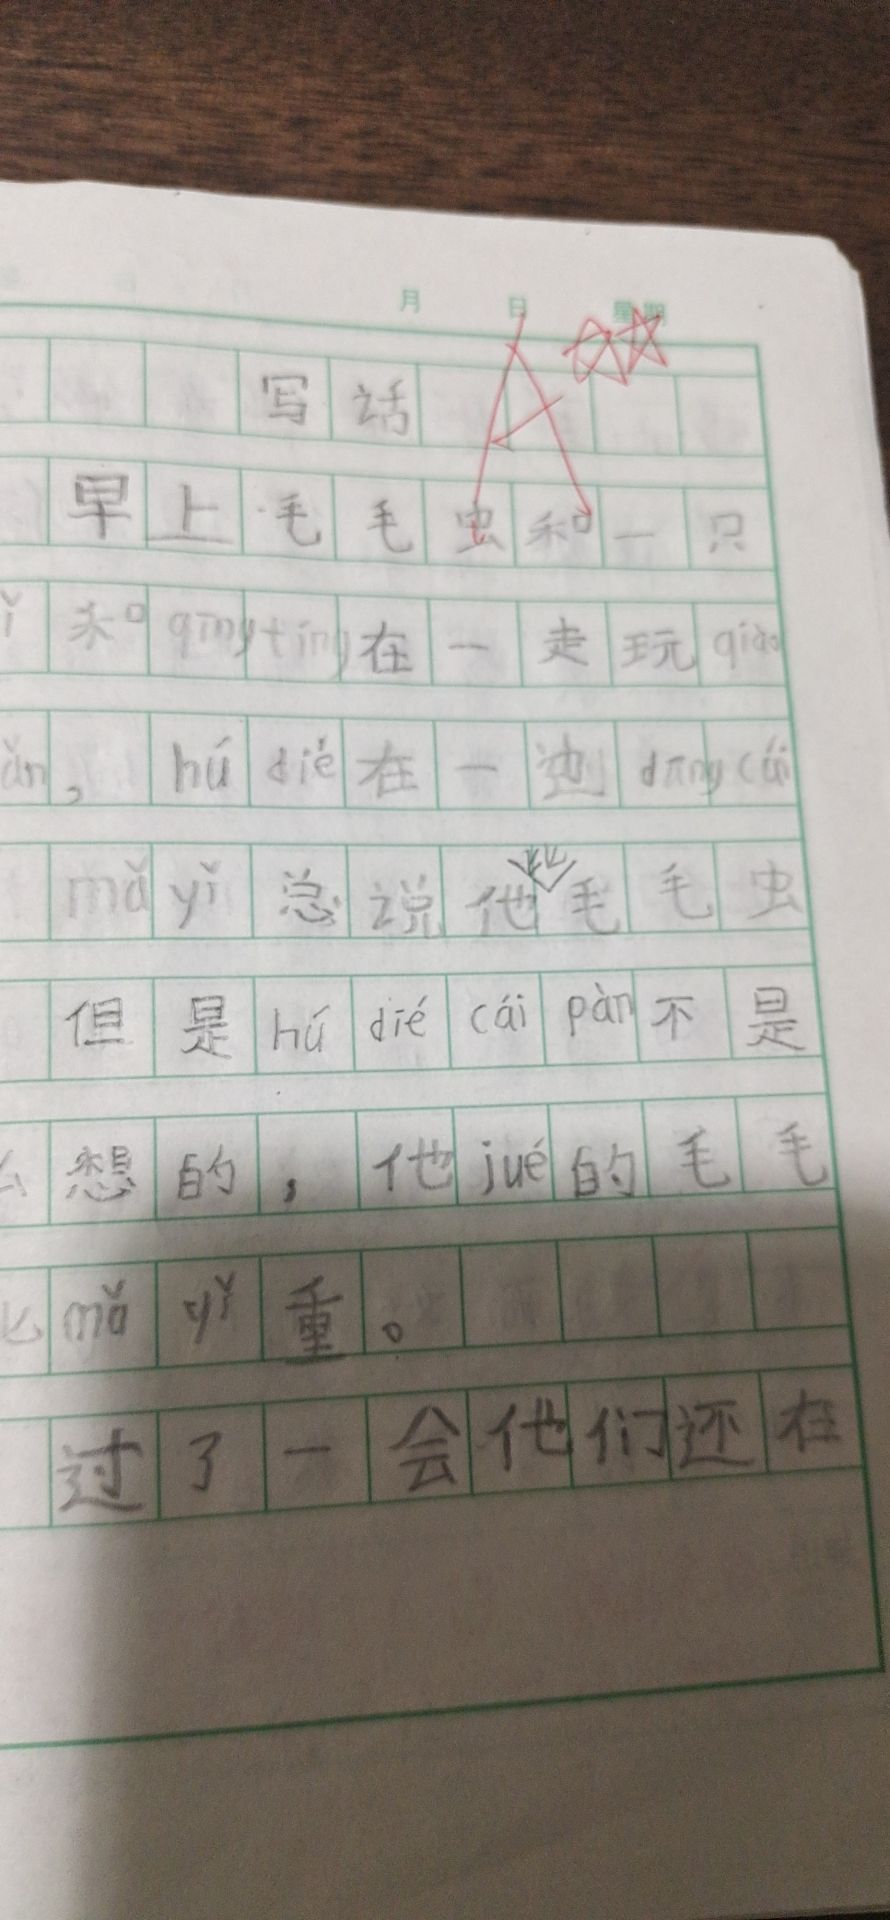 月 日 星期
写话
早上毛毛虫和一只
ǐ和qīngtíng在一走玩qiāo
ǎn，húdié在一边dāngcái
mǎyǐ总说他比毛毛虫
但是húdiécáipàn不是
么想的，他jué的毛毛
比mǎyǐ重。
过了一会他们还在